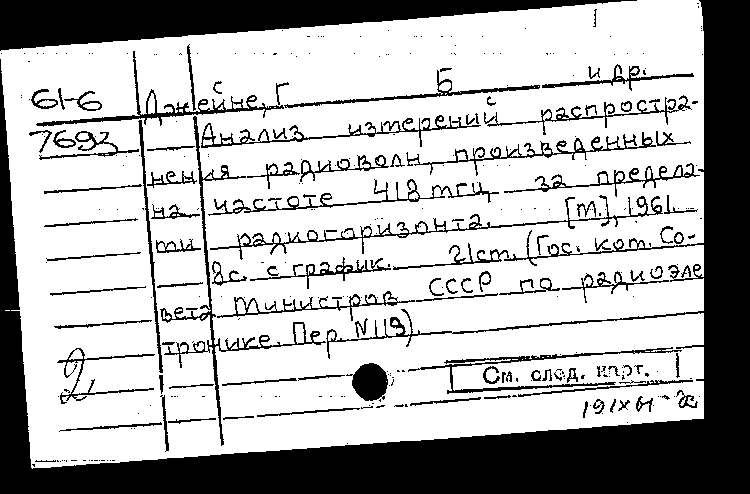 61-6 Джейне, Г Б и др.
7693 Анализ измерений распростра-
нения радиоволн, произведенных
на частоте 418 мгц за предела-
ми радиогоризонта. [М.], 1961.
8с. с график. 21см. (Гос. ком. Со-
вета Министров СССР по радиоэле
тронике. Пер. N 119).
2
См. след. карт.
19 IX 61